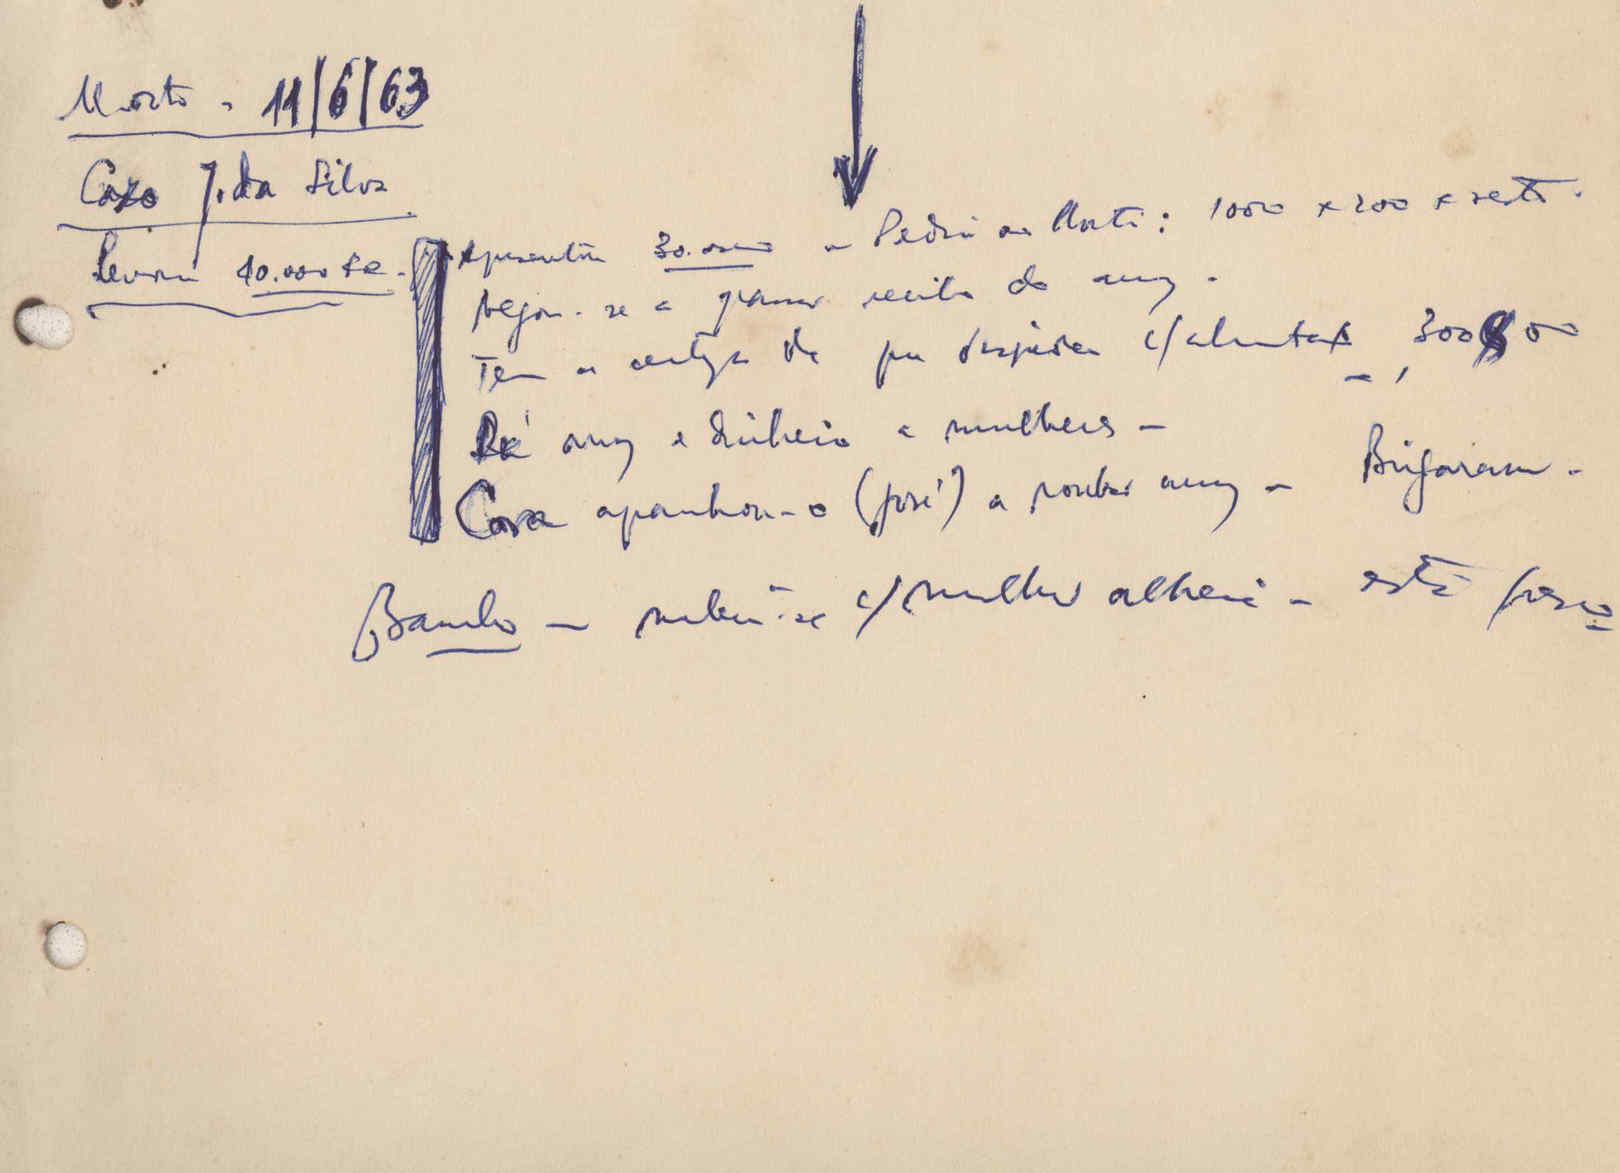 Morto - 11/6/63
Caso J. da Silva
Levou 40.000 fr.
Apresentou 30.000 - Pediu ao Morto: 1000 + 200 + resto.
Negou-se a passar recibo do arroz.
Tem a certeza de que despesa c/alimentação, 300$00
Dá arroz e dinheiro a mulheres -
Cora apanhou-o (José) a roubar arroz - Brigaram.
Bambo - meteu-se c/ mulher alheia - está preso